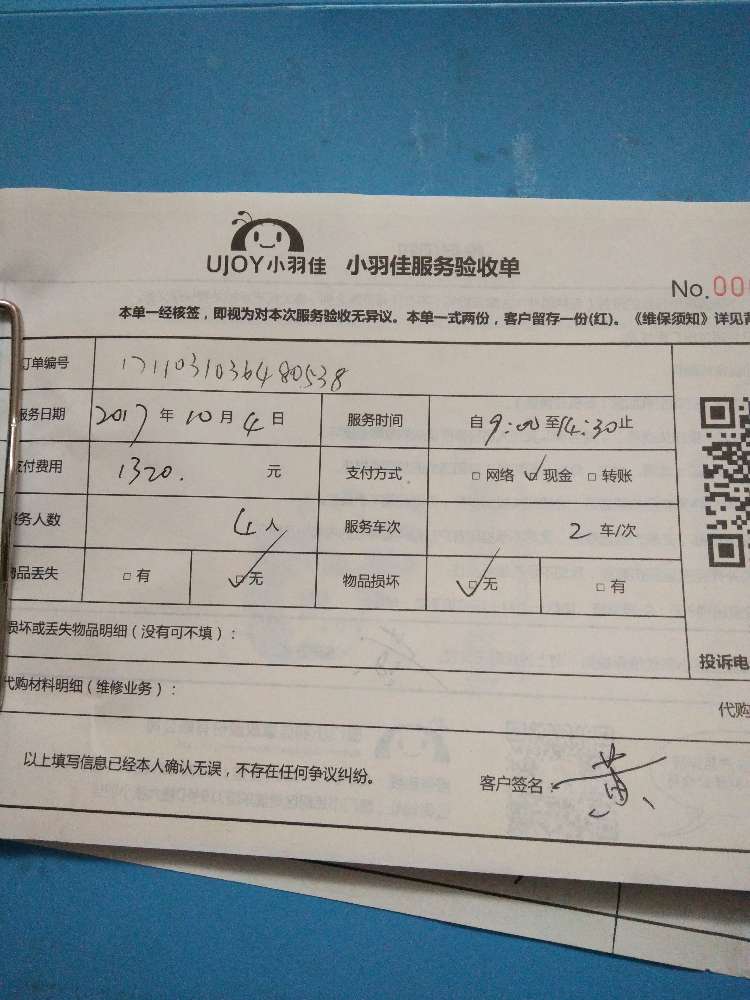 UJOY小羽佳 小羽佳服务验收单
No.00
本单一经核签，即视为对本次服务验收无异议。本单一式两份，客户留存一份(红)。《维保须知》详见背
订单编号 1711031036480538
服务日期 2017 年 10 月 4 日 服务时间 自 9:00 至 14:30 止
支付费用 1320. 元 支付方式 □ 网络 ☑ 现金 □ 转账
服务人数 4 人 服务车次 2 车/次
物品丢失 □ 有 ☑ 无 物品损坏 ☑ 无 □ 有
损坏或丢失物品明细（没有可不填）：
投诉电
代购材料明细（维修业务）：
代购
以上填写信息已经本人确认无误，不存在任何争议纠纷。 客户签名： 黄